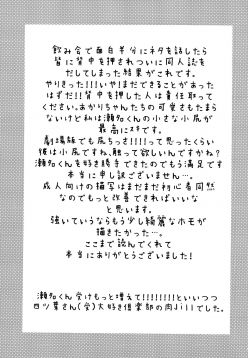 飲み会で面白半分にネタを話したら
皆に背中を押されついに同人誌を
だしてしまった結果がこれです。
やりきった!!!いや!まだできることがあった
はずだ!!背中を押した人は責任取って
くださいね。あかりちゃんたちの可愛さもたまら
ないけど私は瀬名くんの小さな小尻が
最高にスキです。
劇場版でも尻ちっさ!!!!って思ったくらい
彼は小尻ですね、触って欲しいんですかね?
瀬名くんを好き勝手できたのでもう満足です
本当に申し訳ございません…。
成人向けの描写はまだまだ初心者同然
なのでもっと改善できればいいな
と思います。
強いていうならもう少し綺麗なホモが
描きたかった…。
ここまで読んでくれて
本当にありがとうございました!
瀬名くん受けもっと増えて!!!!!!!!といいつつ
四ツ葉さん(受)大好き倶楽部の肉Jillでした。